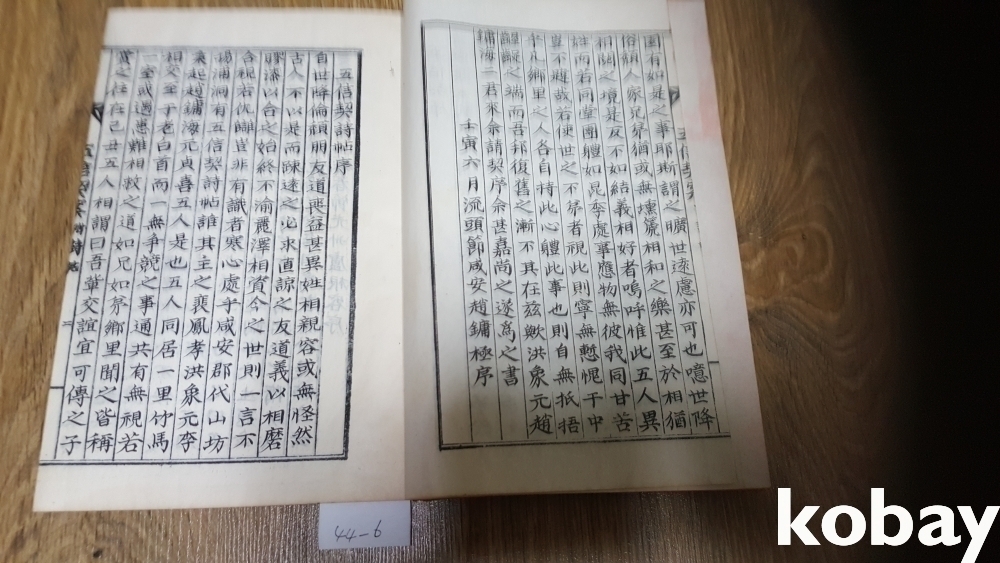 國有如是之事耶斯謂之曠世遠慮亦可也噫世降
俗頹人家兄弟猶或無壎箎相和之樂甚至於相猶
相鬩之境是反不如結義相好者嗚呼惟此五人異
姓而若同堂團體如昆季處事應物無彼我同甘苦
豈不趍哉若使世之不弟者視此則寧無慙愧于中
乎凡鄕里之人各自持此心軆此事也則自無抵捂
齟齬之端而吾邦復舊之漸不其在玆歟洪象元趙
鏞海二君來余請契序余甚嘉尙之遂爲之書
壬寅六月流頭節咸安趙鏞極序
五信契詩帖序
自世降倫頹朋友道喪益甚異姓相親容或無怪然
古人不以是而踈遠之必求直諒之友道義以相磨
膠漆以合之始終不渝麗澤相資今之世則一言不
合視若仇讐豈非有識者寒心處乎咸安郡代山坊
陽浦洞有五信契詩帖誰其主之裵鳳孝洪象元李
秉起趙鏞海元貞喜五人是也五人同居一里竹馬
相交至于老白首而一無爭競之事通共有無視若
一室或遇患難相救之道如兄如弟鄕里聞之皆稱
賞之任在己丑五人相謂曰吾輩交誼宜可傳之子
44-6
kobay